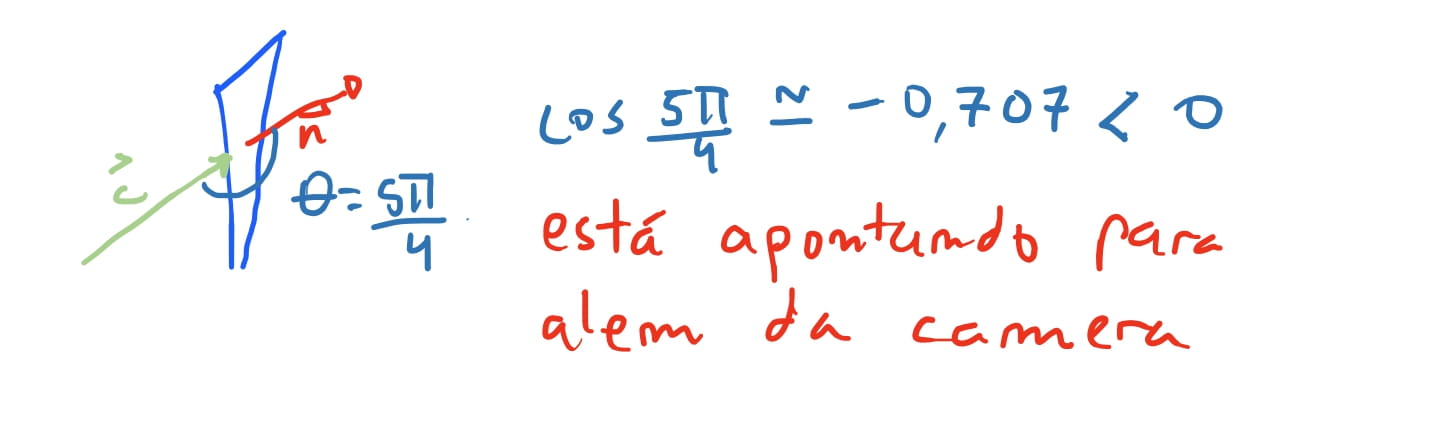 c⃗
n
θ = 5π/4
cos 5π/4 ≃ -0,707 < 0
está apontando para
alem da camera